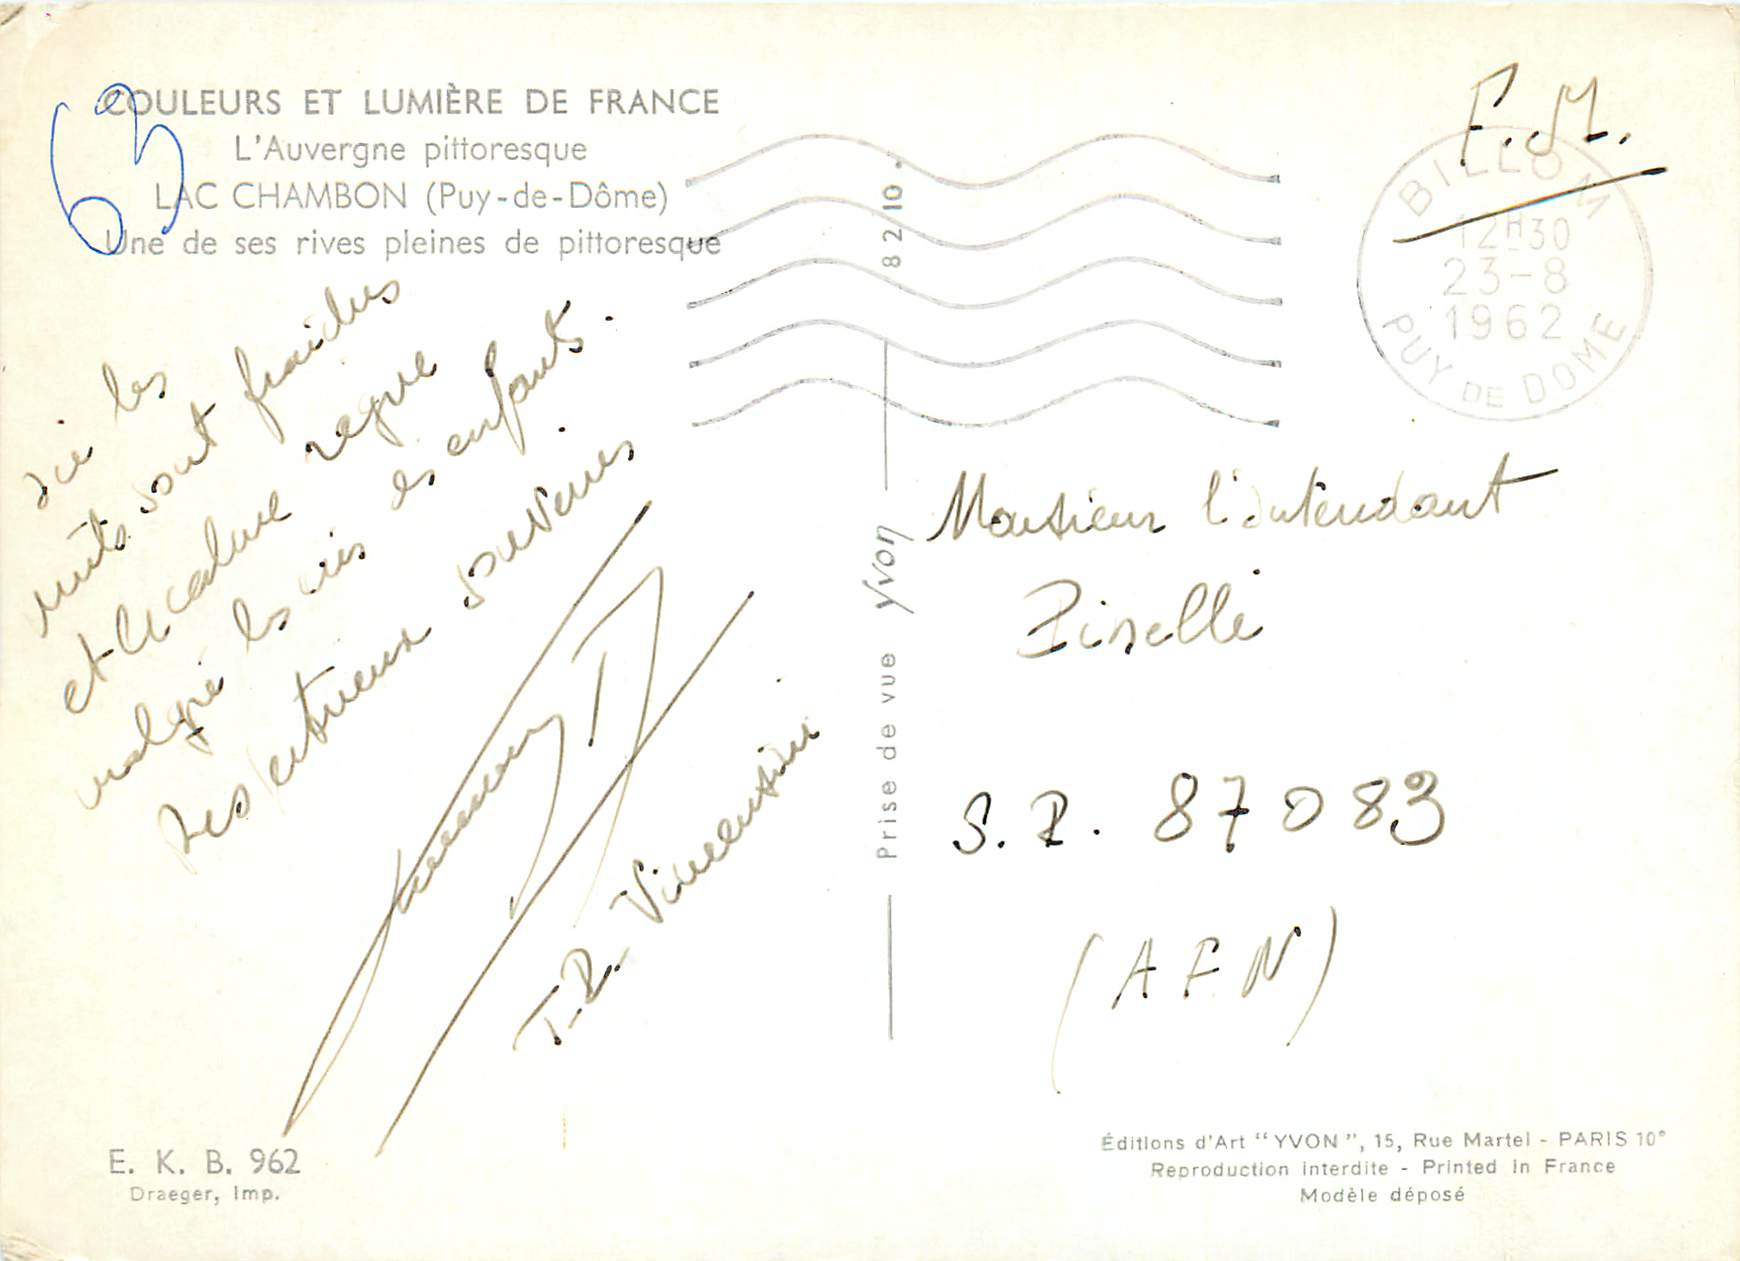 COULEURS ET LUMIÈRE DE FRANCE
L'Auvergne pittoresque
LAC CHAMBON (Puy-de-Dôme)
Une de ses rives pleines de pittoresque
63
ici les
nuits sont fraîches
et le calme règne
malgré les cris des enfants.
Respectueux souvenirs
T.P. Vincensini
E. K. B. 962
Draeger, Imp.
8 2 10
Prise de vue Yvon
F.M.
BILLOM
12H30
23-8
1962
PUY DE DOME
Monsieur l'intendant
Pinelli
S.P. 87083
(AFN)
Éditions d'Art "YVON", 15, Rue Martel - PARIS 10e
Reproduction interdite - Printed in France
Modèle déposé